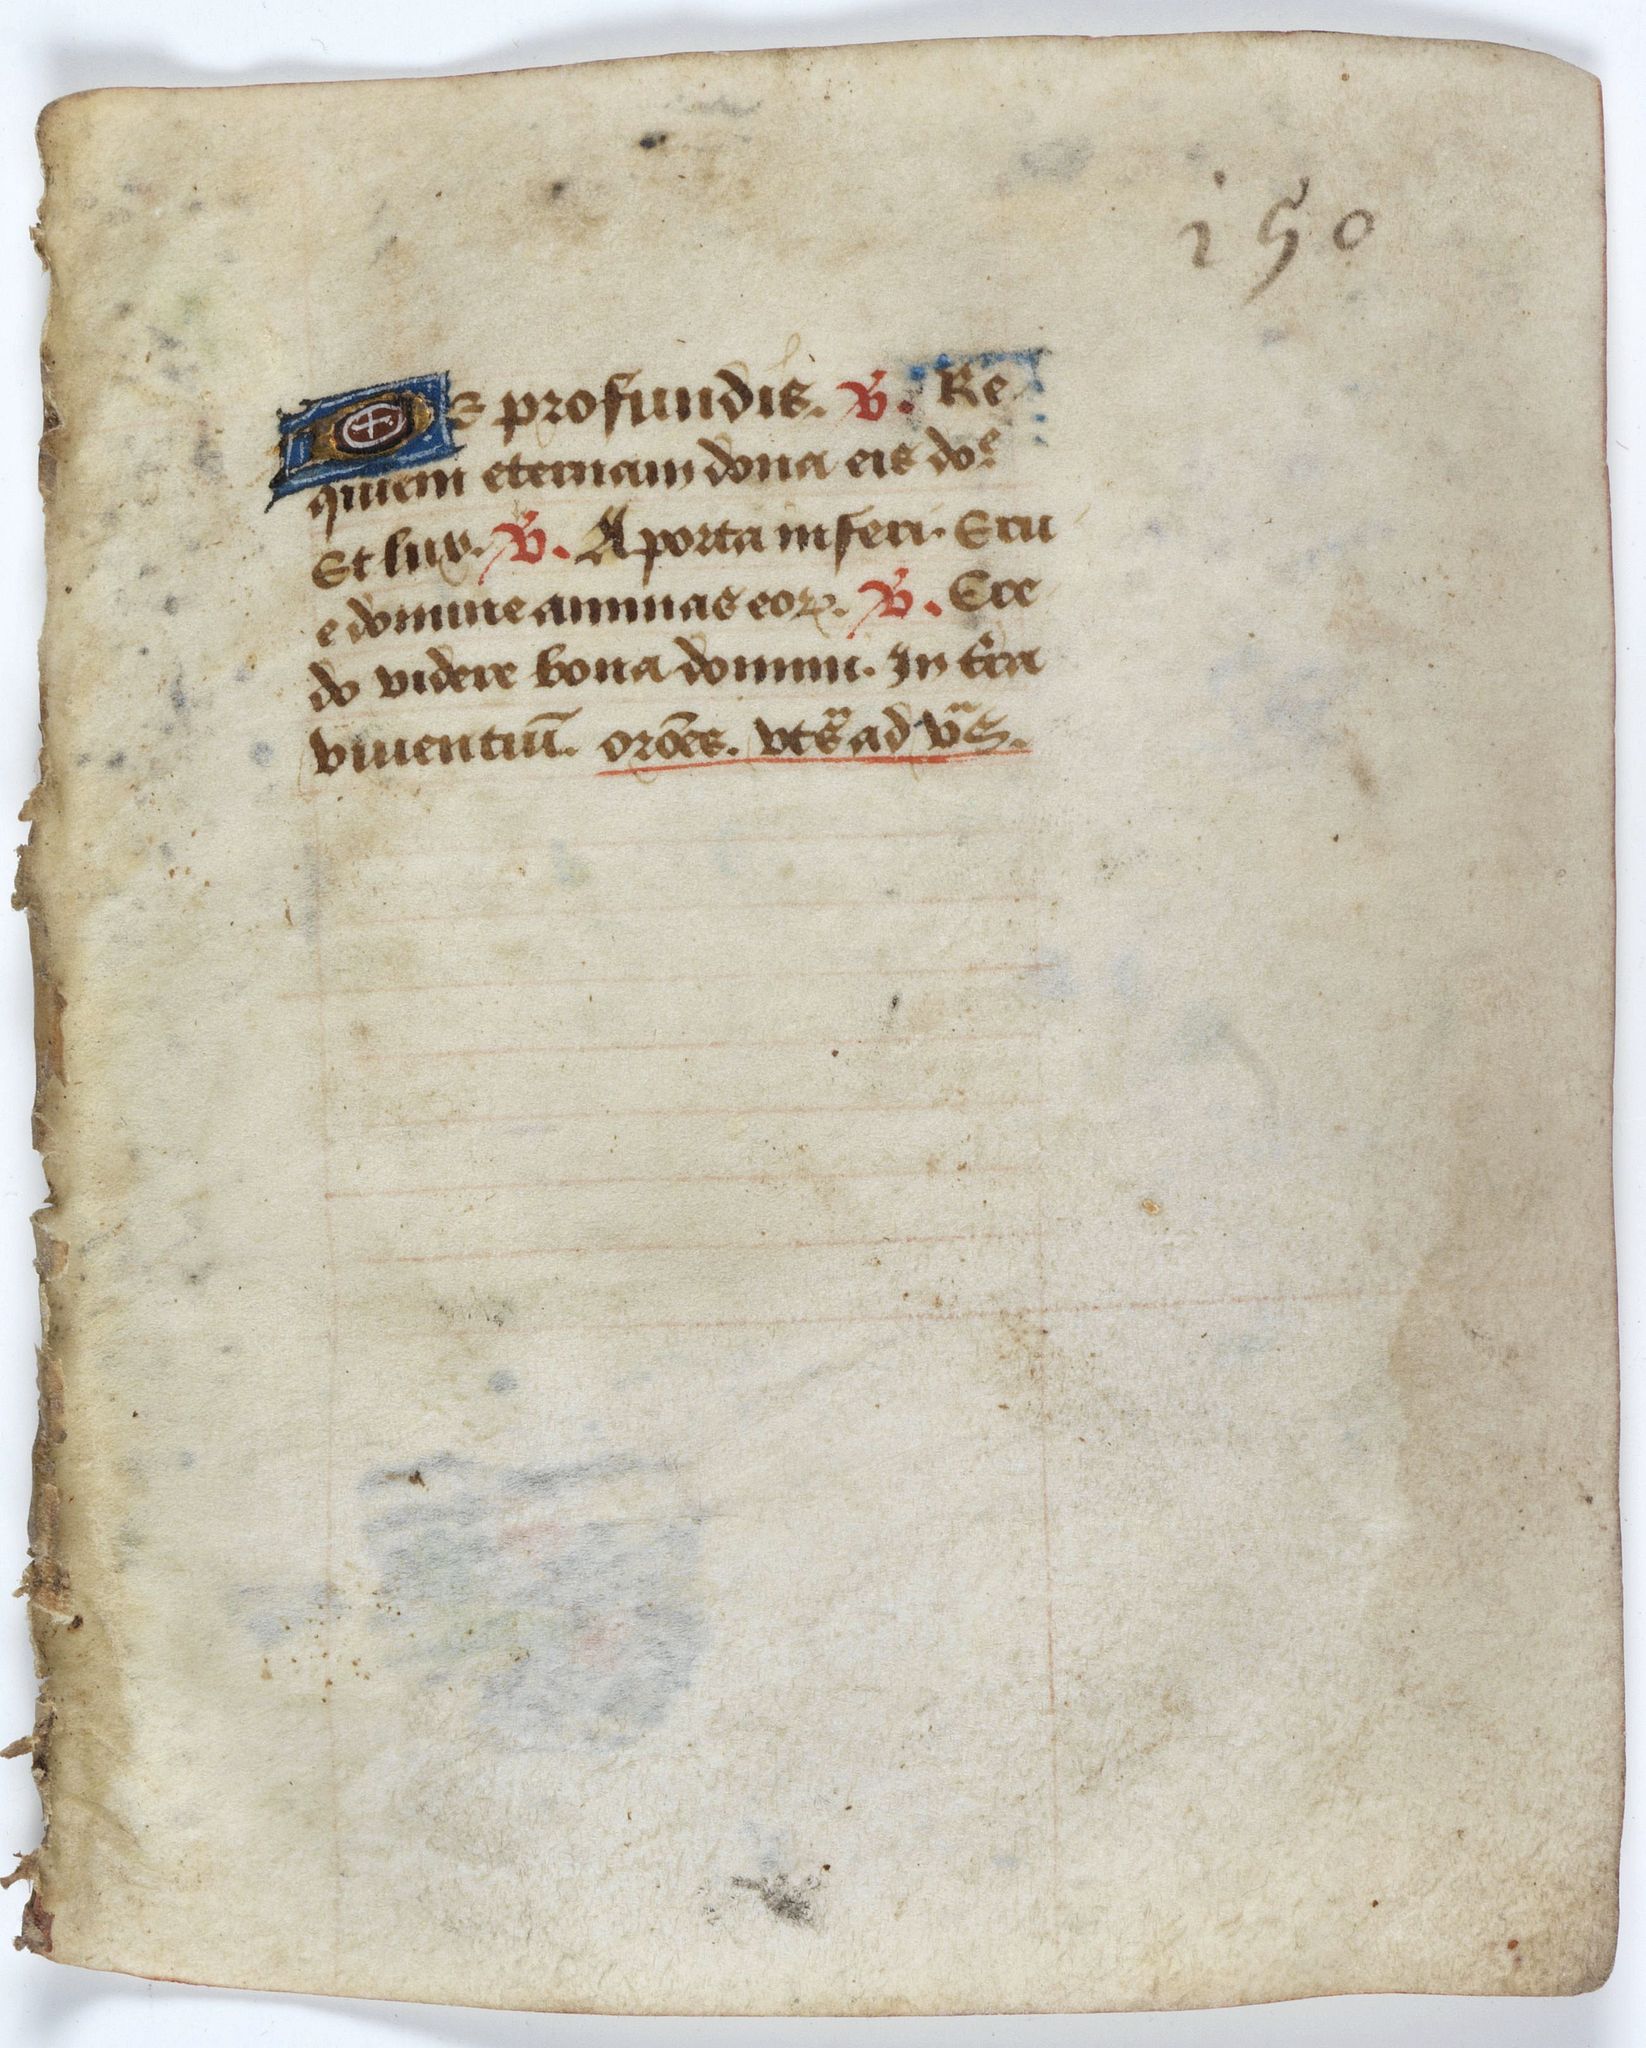 150
De profundis. V̄. Re
quiem eternam dona eis doē
Et lux. V̄. A porta inferi. Eru
e domine animas eoꝝ. V̄. Cre
do videre bona domini. In t̄ra
viuentiū. orōes. vts̄ ad vas̄.